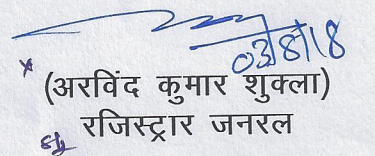 03/8/18
(अरविंद कुमार शुक्ला)
रजिस्ट्रार जनरल